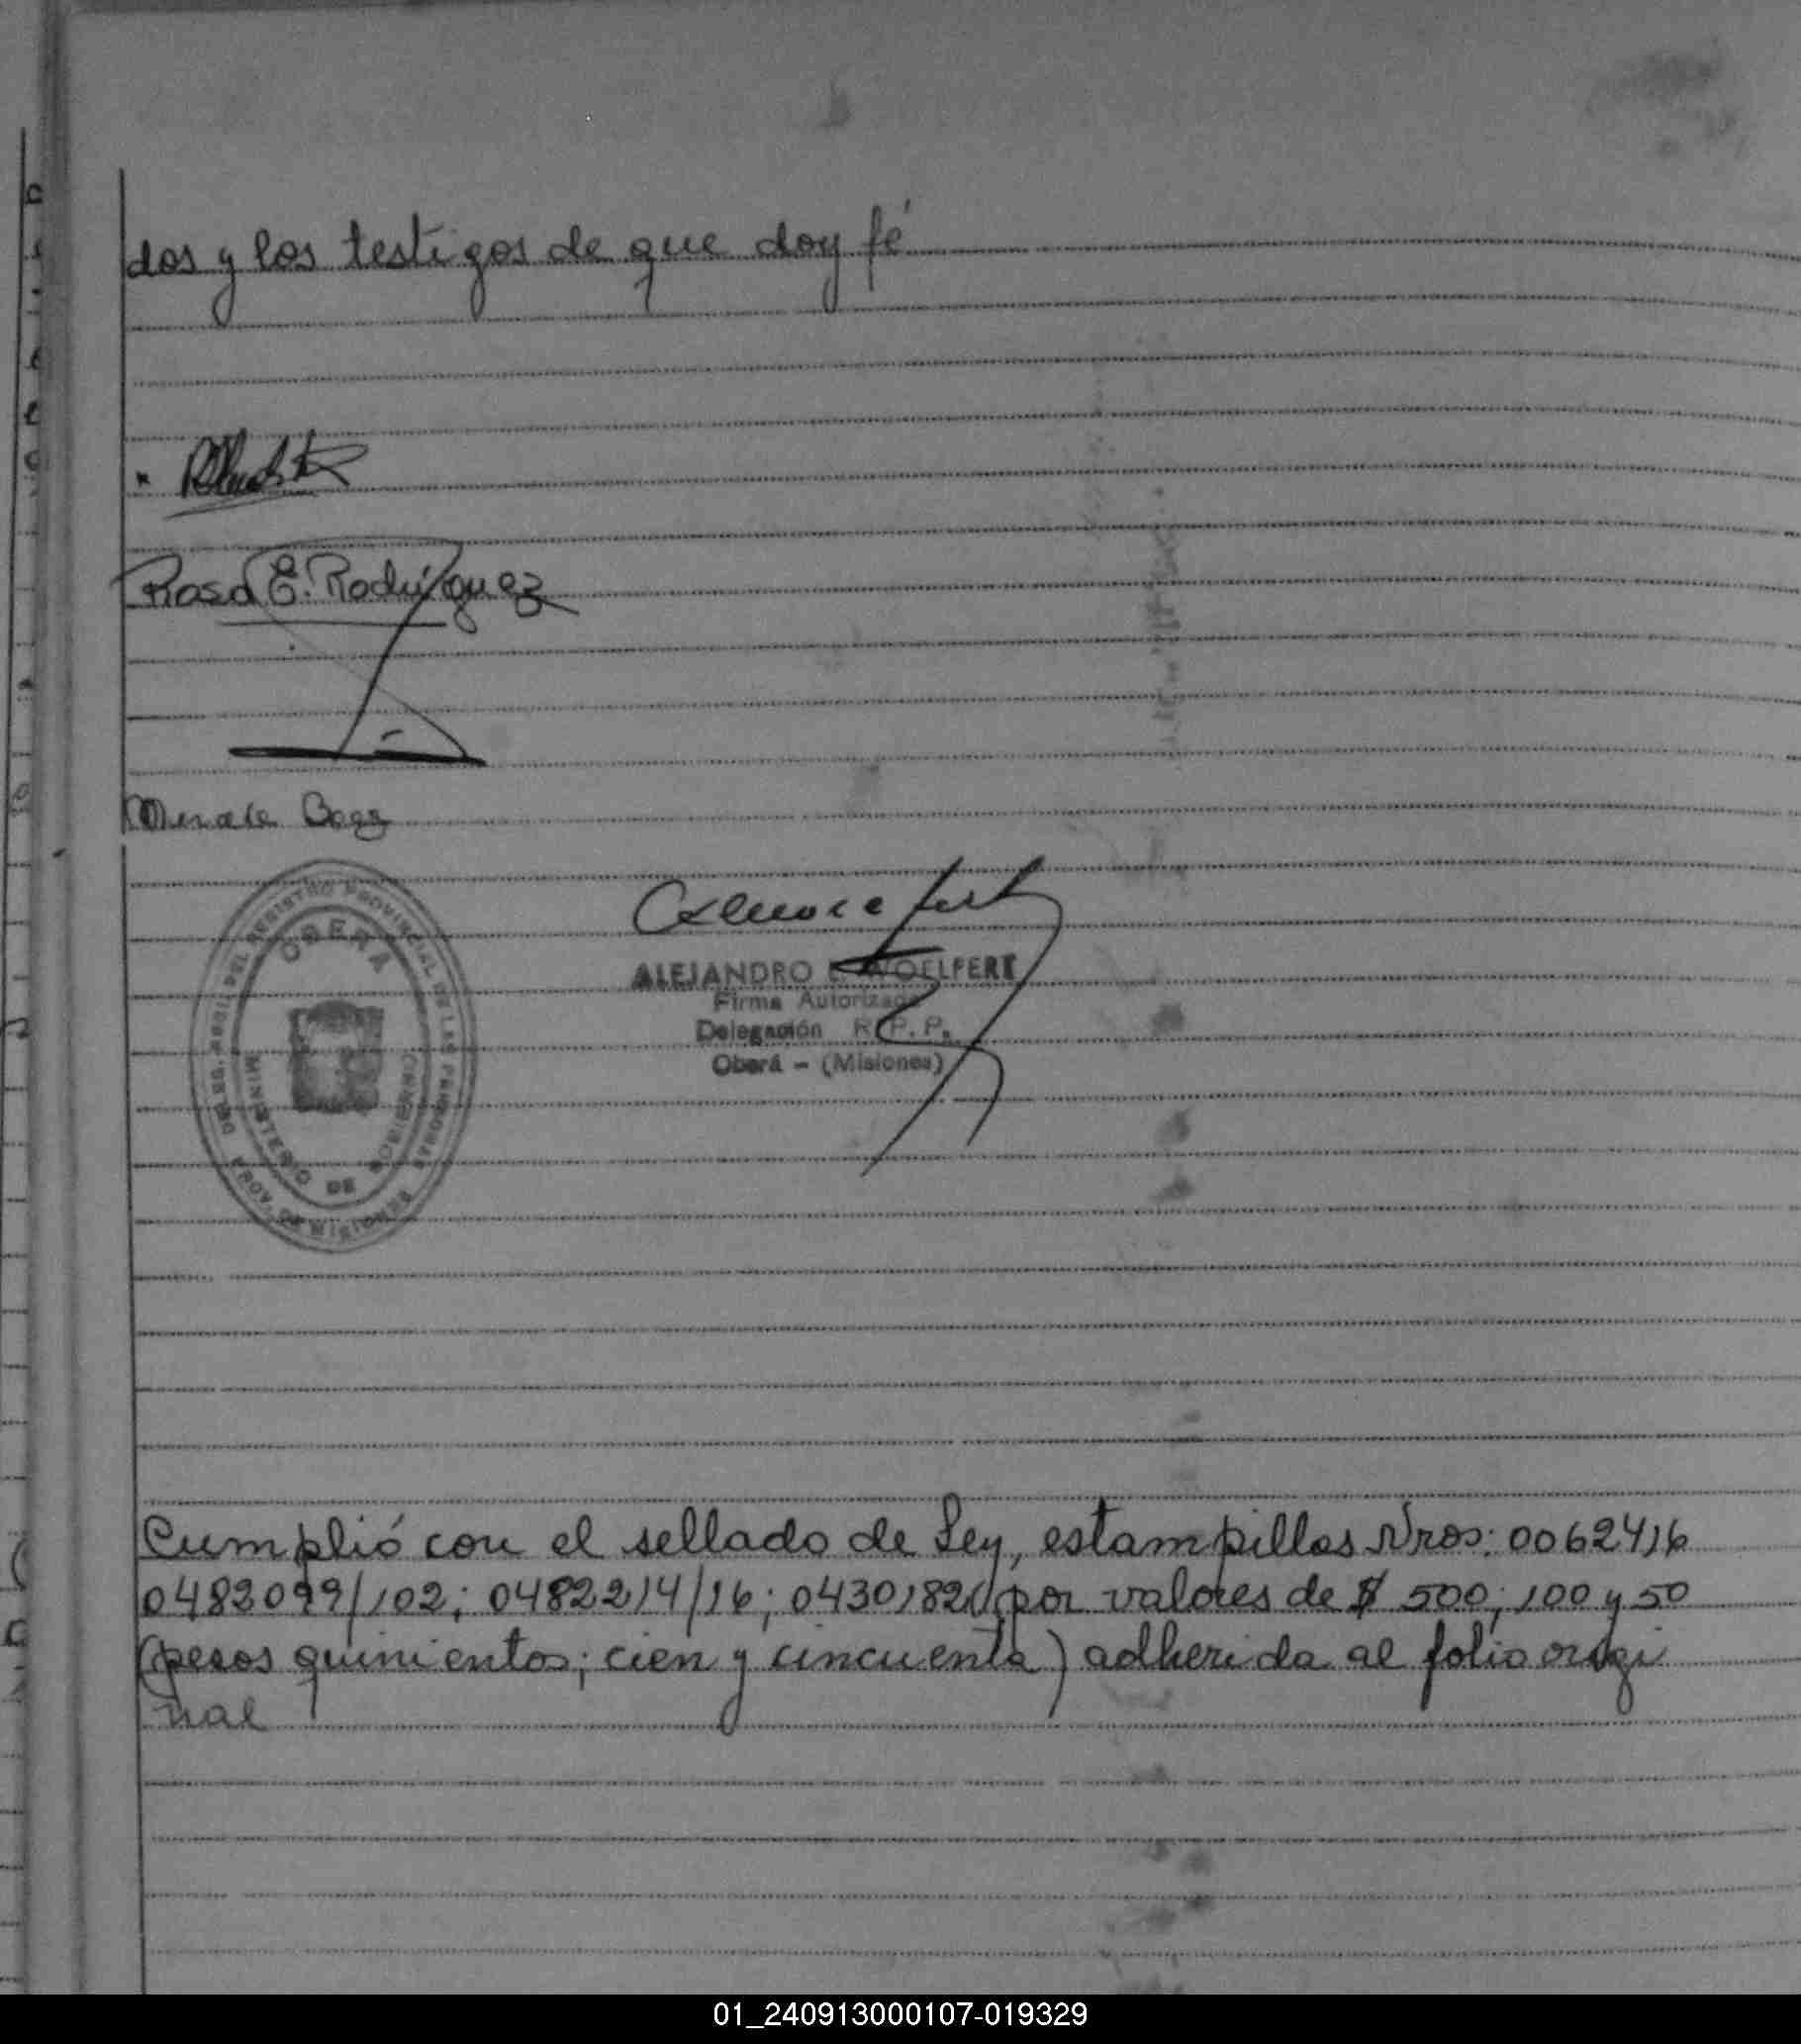 dos y los testigos de que doy fé
Rosa E. Rodríguez
OBERA
MINISTERIO DE
PROV. DE MISIONES
ALEJANDRO WOELFERT
Firma Autorizada
Delegación R. P. P.
Oberá - (Misiones)
Cumplió con el sellado de Ley, estampillas Nros: 0062416
0482099/102; 0482214/16; 0430182 por valores de $ 500; 100 y 50
(pesos quinientos; cien y cincuenta) adherida al folio origi
nal
01_240913000107-019329